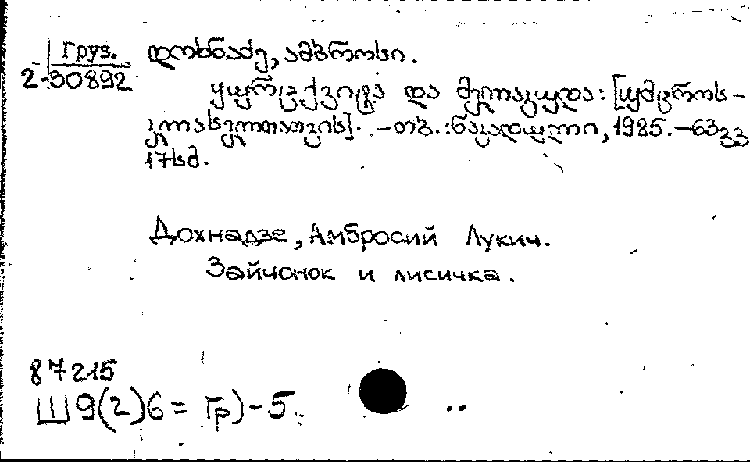 Груз.
2-30892
დოხნაძე, ამბროსი.
ყურცქვიტა და მელაკუდა: [უმცროს-
კლასელთათვის]. -თბ.: ნაკადული, 1985. -63გვ
17სმ.
Дохнадзе, Амбросий Лукич.
Зайчонок и лисичка.
87215
Ш9(2)6=Гр)-5.